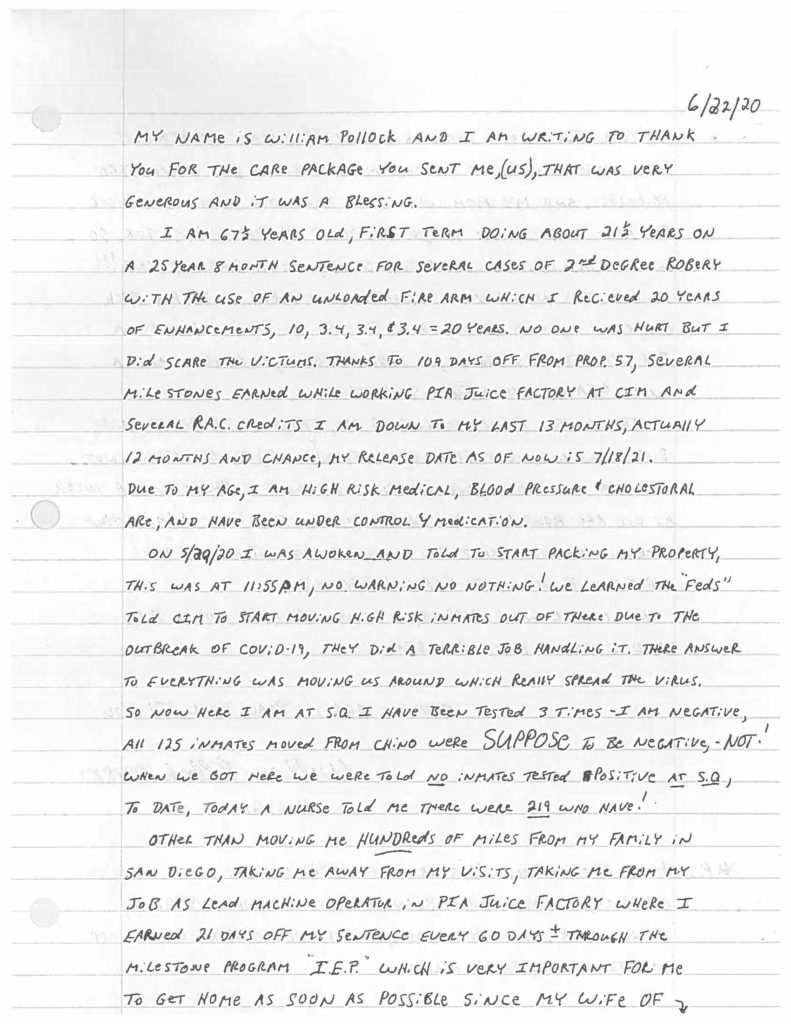 6/22/20
MY NAME IS WILLIAM POLLOCK AND I AM WRITING TO THANK
YOU FOR THE CARE PACKAGE YOU SENT ME,(US), THAT WAS VERY
GENEROUS AND IT WAS A BLESSING.
I AM 67½ YEARS OLD, FIRST TERM DOING ABOUT 21½ YEARS ON
A 25 YEAR 8 MONTH SENTENCE FOR SEVERAL CASES OF 2nd DEGREE ROBERY
WITH THE USE OF AN UNLOADED FIRE ARM WHICH I RECIEVED 20 YEARS
OF ENHANCEMENTS, 10, 3.4, 3.4, & 3.4 = 20 YEARS. NO ONE WAS HURT BUT I
DID SCARE THE VICTUMS. THANKS TO 109 DAYS OFF FROM PROP. 57, SEVERAL
MILESTONES EARNED WHILE WORKING PIA JUICE FACTORY AT CIM AND
SEVERAL R.A.C. CREDITS I AM DOWN TO MY LAST 13 MONTHS, ACTUALLY
12 MONTHS AND CHANCE, MY RELEASE DATE AS OF NOW IS 7/18/21.
DUE TO MY AGE, I AM HIGH RISK MEDICAL, BLOOD PRESSURE & CHOLESTORAL
ARE, AND HAVE BEEN UNDER CONTROL Y MEDICATION.
ON 5/29/20 I WAS AWOKEN AND TOLD TO START PACKING MY PROPERTY,
THIS WAS AT 11:55PM, NO WARNING NO NOTHING! WE LEARNED THE "FEDS"
TOLD CIM TO START MOVING HIGH RISK INMATES OUT OF THERE DUE TO THE
OUTBREAK OF COVID-19, THEY DID A TERRIBLE JOB HANDLING IT. THERE ANSWER
TO EVERYTHING WAS MOVING US AROUND WHICH REALLY SPREAD THE VIRUS.
SO NOW HERE I AM AT S.Q. I HAVE BEEN TESTED 3 TIMES - I AM NEGATIVE,
ALL 125 INMATES MOVED FROM CHINO WERE SUPPOSE TO BE NEGATIVE, - NOT!
WHEN WE GOT HERE WE WERE TOLD NO INMATES TESTED POSITIVE AT S.Q,
TO DATE, TODAY A NURSE TOLD ME THERE WERE 219 WHO HAVE!
OTHER THAN MOVING ME HUNDREDS OF MILES FROM MY FAMILY IN
SAN DIEGO, TAKING ME AWAY FROM MY VISITS, TAKING ME FROM MY
JOB AS LEAD MACHINE OPERATOR IN PIA JUICE FACTORY WHERE I
EARNED 21 DAYS OFF MY SENTENCE EVERY 60 DAYS ± THROUGH THE
MILESTONE PROGRAM "I.E.P." WHICH IS VERY IMPORTANT FOR ME
TO GET HOME AS SOON AS POSSIBLE SINCE MY WIFE OF ↴